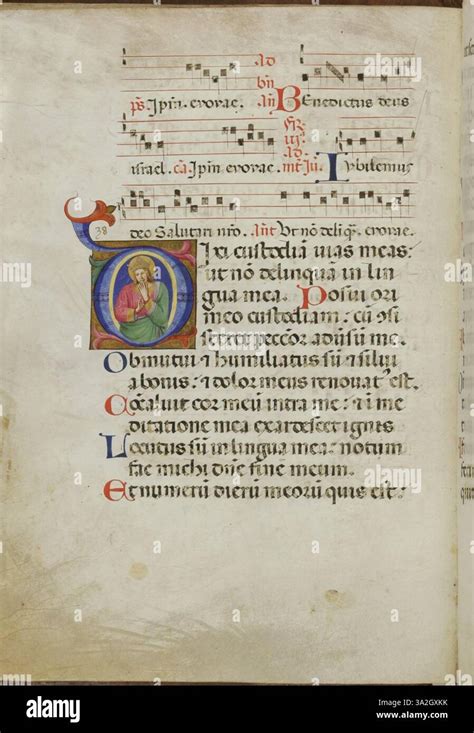 ad
bñ
ps. Ipm. evovae. añ Benedictus deus
israel. ca. Ipm evovae. Iubilemus
deo Salutari nro. ant Vt nō deliq. evovae.
38
Dixi custodiam uias meas:
ut nō delinquā in lin
gua mea. Posui ori
meo custodiam: cū
peccōr aduersū me.
Obmutui & humiliatus sū & silui
a bonis: & dolor meus renouat est.
Cōcaluit cor meū intra me: & ī me
ditatione mea exardescet ignis
Locutus sū in lingua mea: notum
fac michi dñe finē meum.
Et numerū dierū meorū quis est:
alamy
Image ID: 3A2GXKK
www.alamy.com